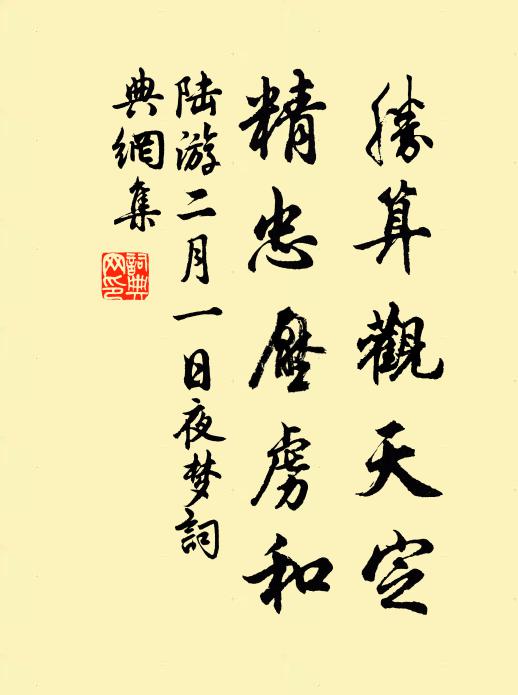 勝算觀天定
精忠壓虜和
陸游二月一日夜梦詞
典網集
詞典网印